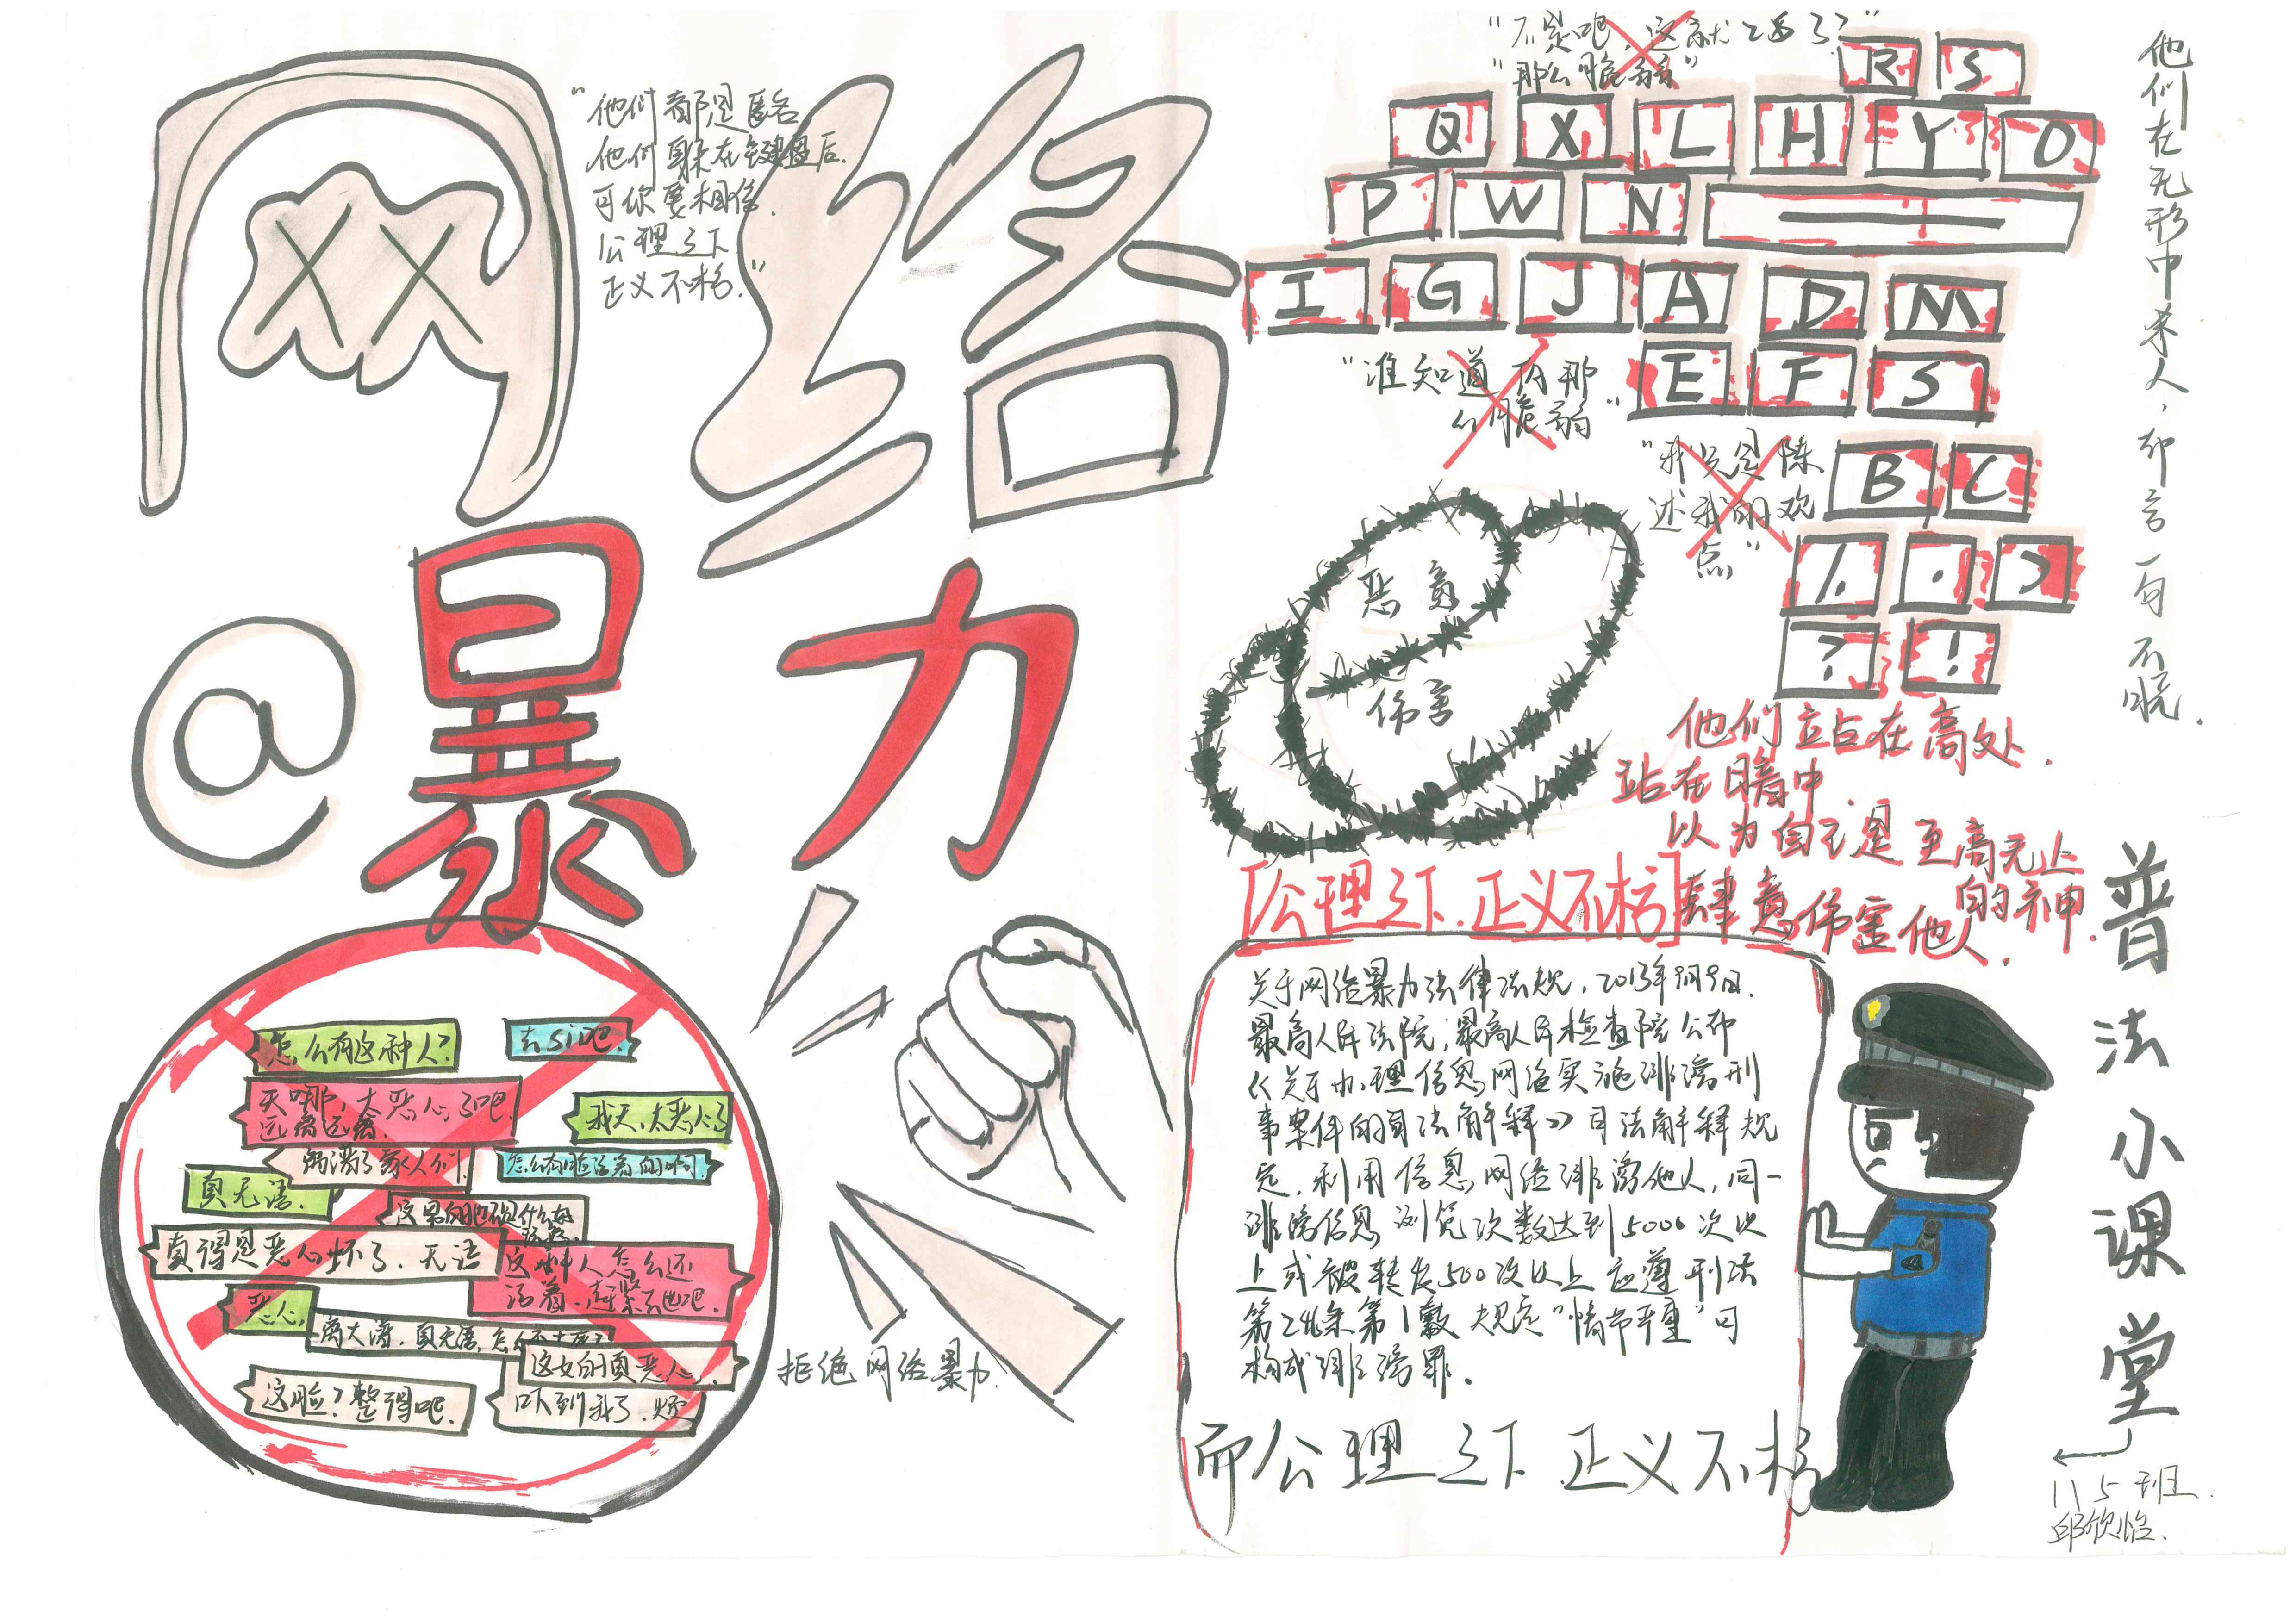 网络
@暴力
"他们都是匿名
他们躲在键盘后.
可你要相信.
公理之下
正义不朽."
怎么有这种人?
去si吧.
天哪,太恶心了吧.
远离远离.
我天,太恶心了
真无语.
怎么有脸活着的啊.
真得是恶心坏了.无语
这种人怎么还
活着.赶紧去他吧.
恶心
离大谱.真无语.
这女的真恶心.
吓到我了.
这脸?整得吧.
拒绝网络暴力.
"不是吧,这就
"那么脆弱"
R S
Q X L H Y O
P W N
I G J A D M
E F S
B C
/. . >
? !
"谁知道
么脆弱"
"我只是陈
述我的观
点"
恶意
伤害
他们站在高处.
站在暗中.
以为自己是至高无上
的神.
肆意伤害他人.
[公理之下.正义不朽]
他们在无形中杀人,却言一句不晓.
关于网络暴力法律法规,2013年9月9日.
最高人民法院,最高人民检查院公布
《关于办理信息网络实施诽谤刑
事案件的司法解释》司法解释规
定,利用信息网络诽谤他人,同一
诽谤信息浏览次数达到5000次以
上或被转发500次以上应遵刑法
第246条第1款规定"情节严重"可
构成诽谤罪.
而公理之下 正义不朽
普法小课堂
115班.
邱欣怡.